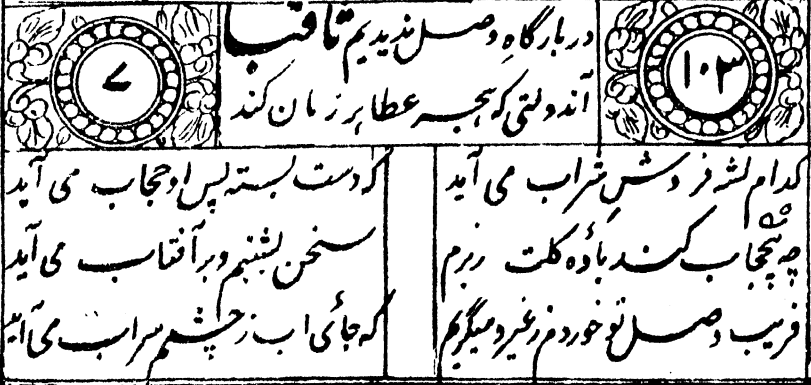 ۱۰۳
۷
در بارگاهِ وصل ندیدیم تا قتبا
آندولتی که هجر عطا هر زمان کند
کدام نشه فروش شراب می آید
که دست بسته پس او حجاب می آید
چه بیحجاب کند بادهٔ کلت بزم
سخن بشبنم و بر آفتاب می آید
فریب وصل تو خوردم ز غیر و میگریم
که جائی اب ز چشمم سراب می آید